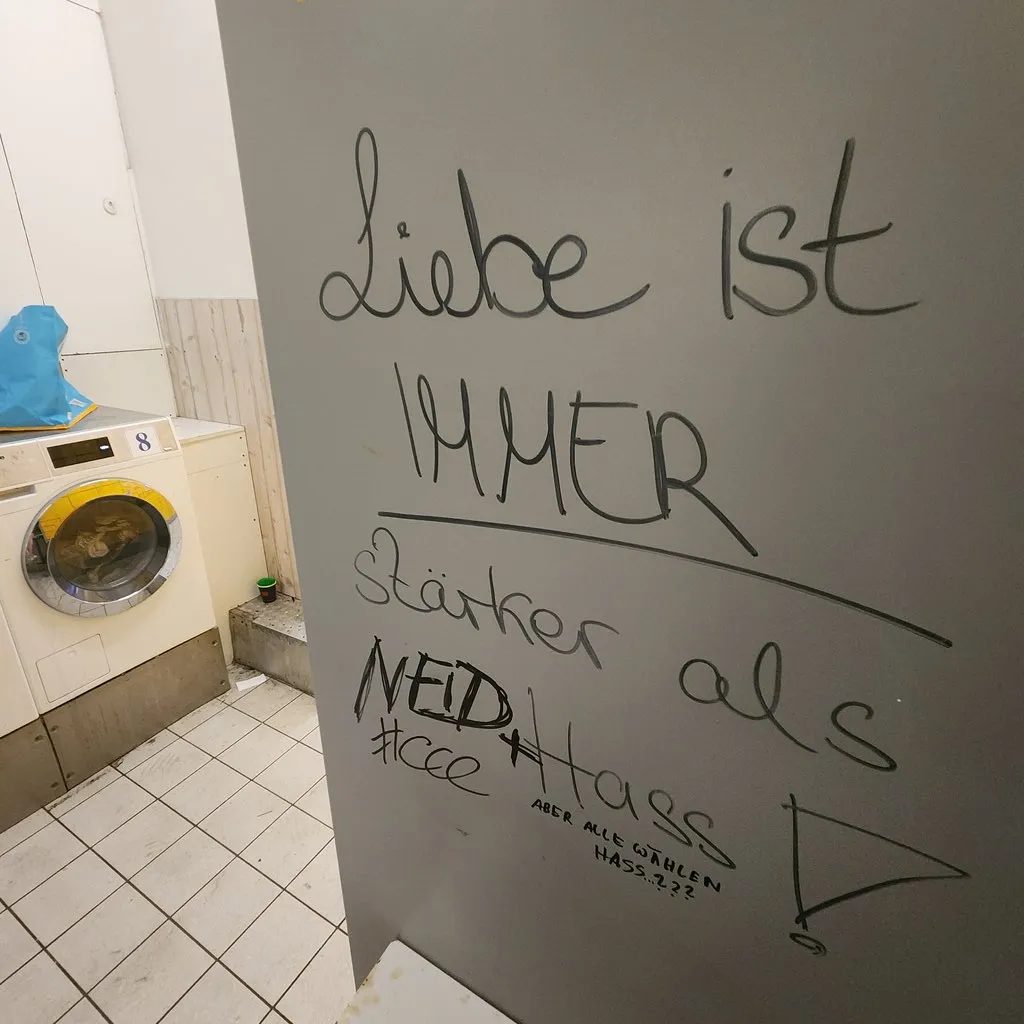 8
Liebe ist
IMMER
stärker als
NEID + Hass
#cce
ABER ALLE WÄHLEN
HASS..???